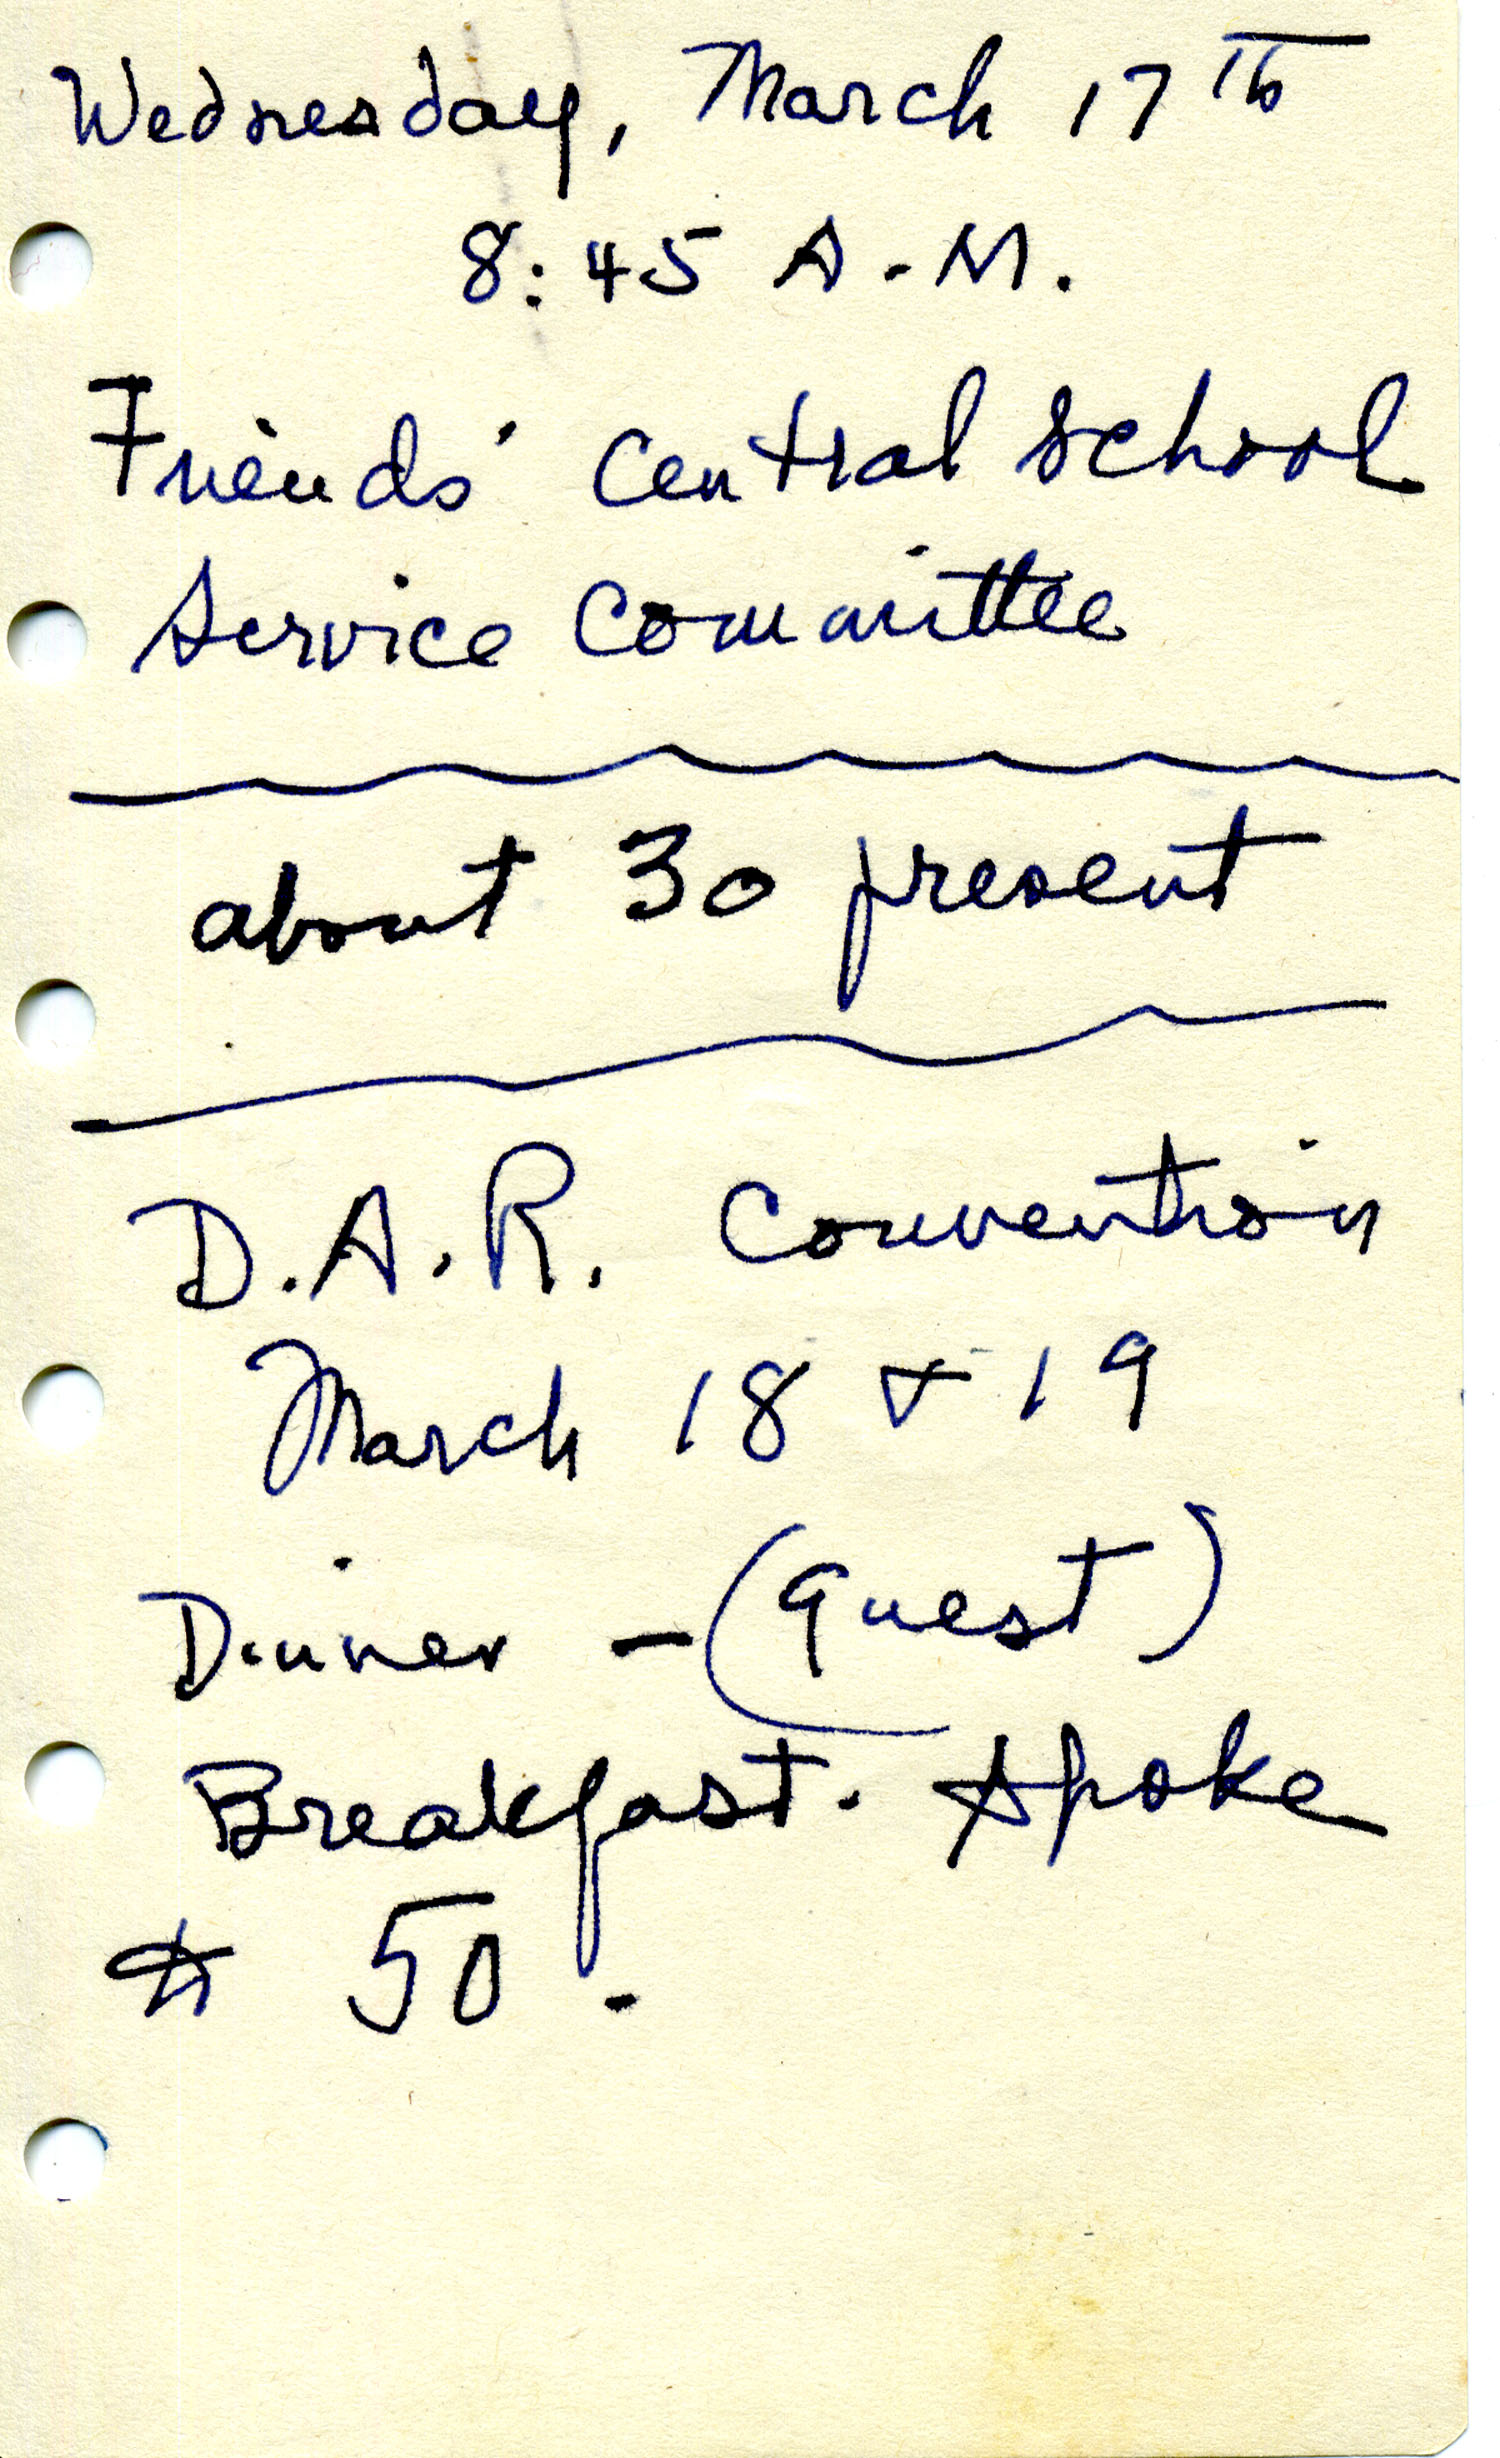 Wednesday, March 17th
8:45 A.M.
Friends' Central School
Service Committee
about 30 present
D.A.R. Convention
March 18 & 19
Dinner - (Guest)
Breakfast. Spoke
50.